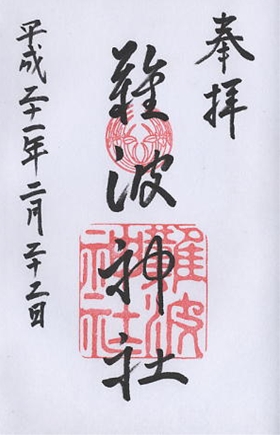 奉拝
難波神社
難波神社
平成二十一年二月二十二日